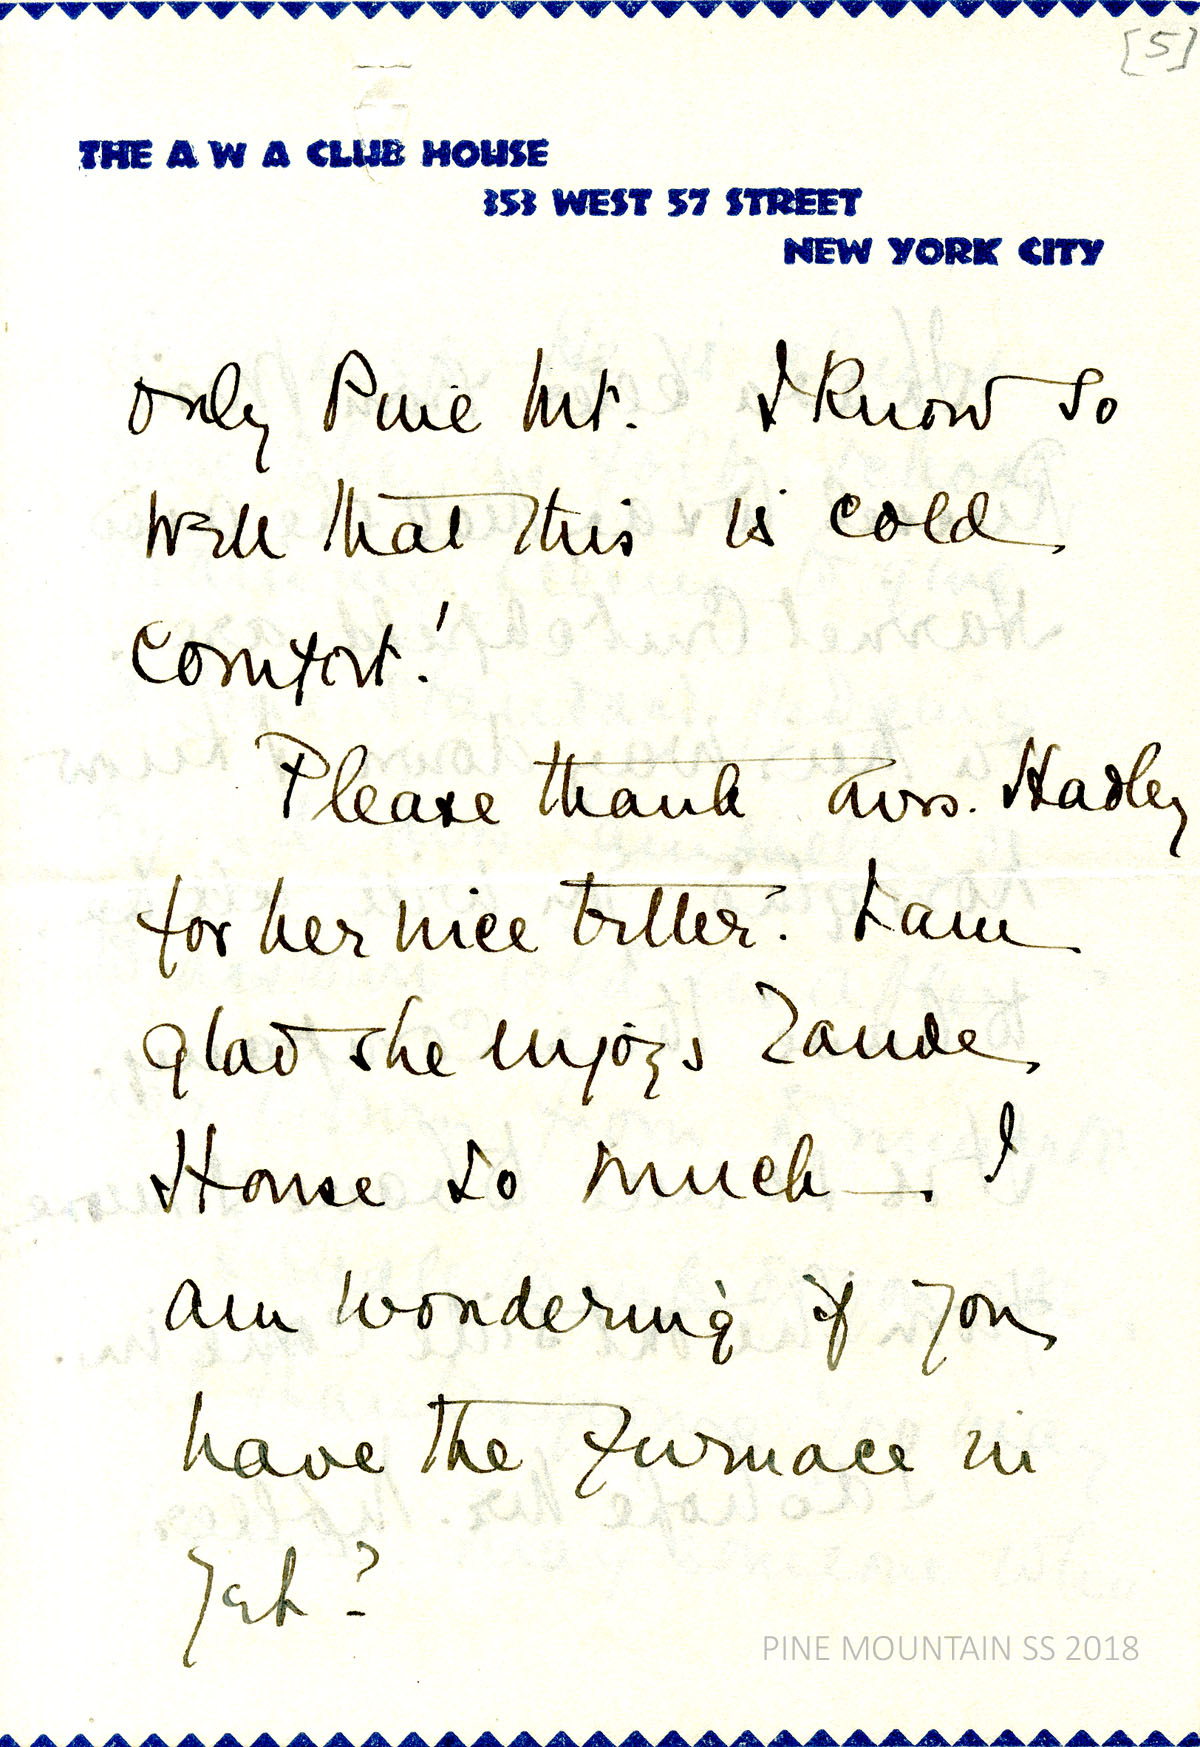 [5]
THE A W A CLUB HOUSE
353 WEST 57 STREET
NEW YORK CITY
only Pine Mt. I know so
well that this is cold
comfort!
Please thank Mrs. Hadley
for her nice letter. I am
glad she enjoys Zande
House so much—. I
am wondering if you
have the furnace in
yet?
PINE MOUNTAIN SS 2018